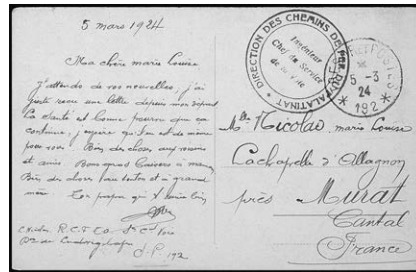 5 mars 1924
Ma chère marie Louise
J'attends de vos nouvelles, j'ai
juste recu une lettre depuis mon départ
La santé est bonne pourvu que ca
continue, j'espère qu'il en est de même
pour vous. Bien des choses aux voisins
et amis. Bons gros baisers à maman
Bien des choses aux tantes et à grand
mère. Ton papa
R.C.F.C.
S.P. 192
DIRECTION DES CHEMINS DE FER DU PALATINAT
Ingénieur
Chef du Service
de la Voie
POSTES
5-3
24
* 192 *
Mlle Nicolas marie Louise
Lachapelle d'Allagnon
près Murat
Cantal
France